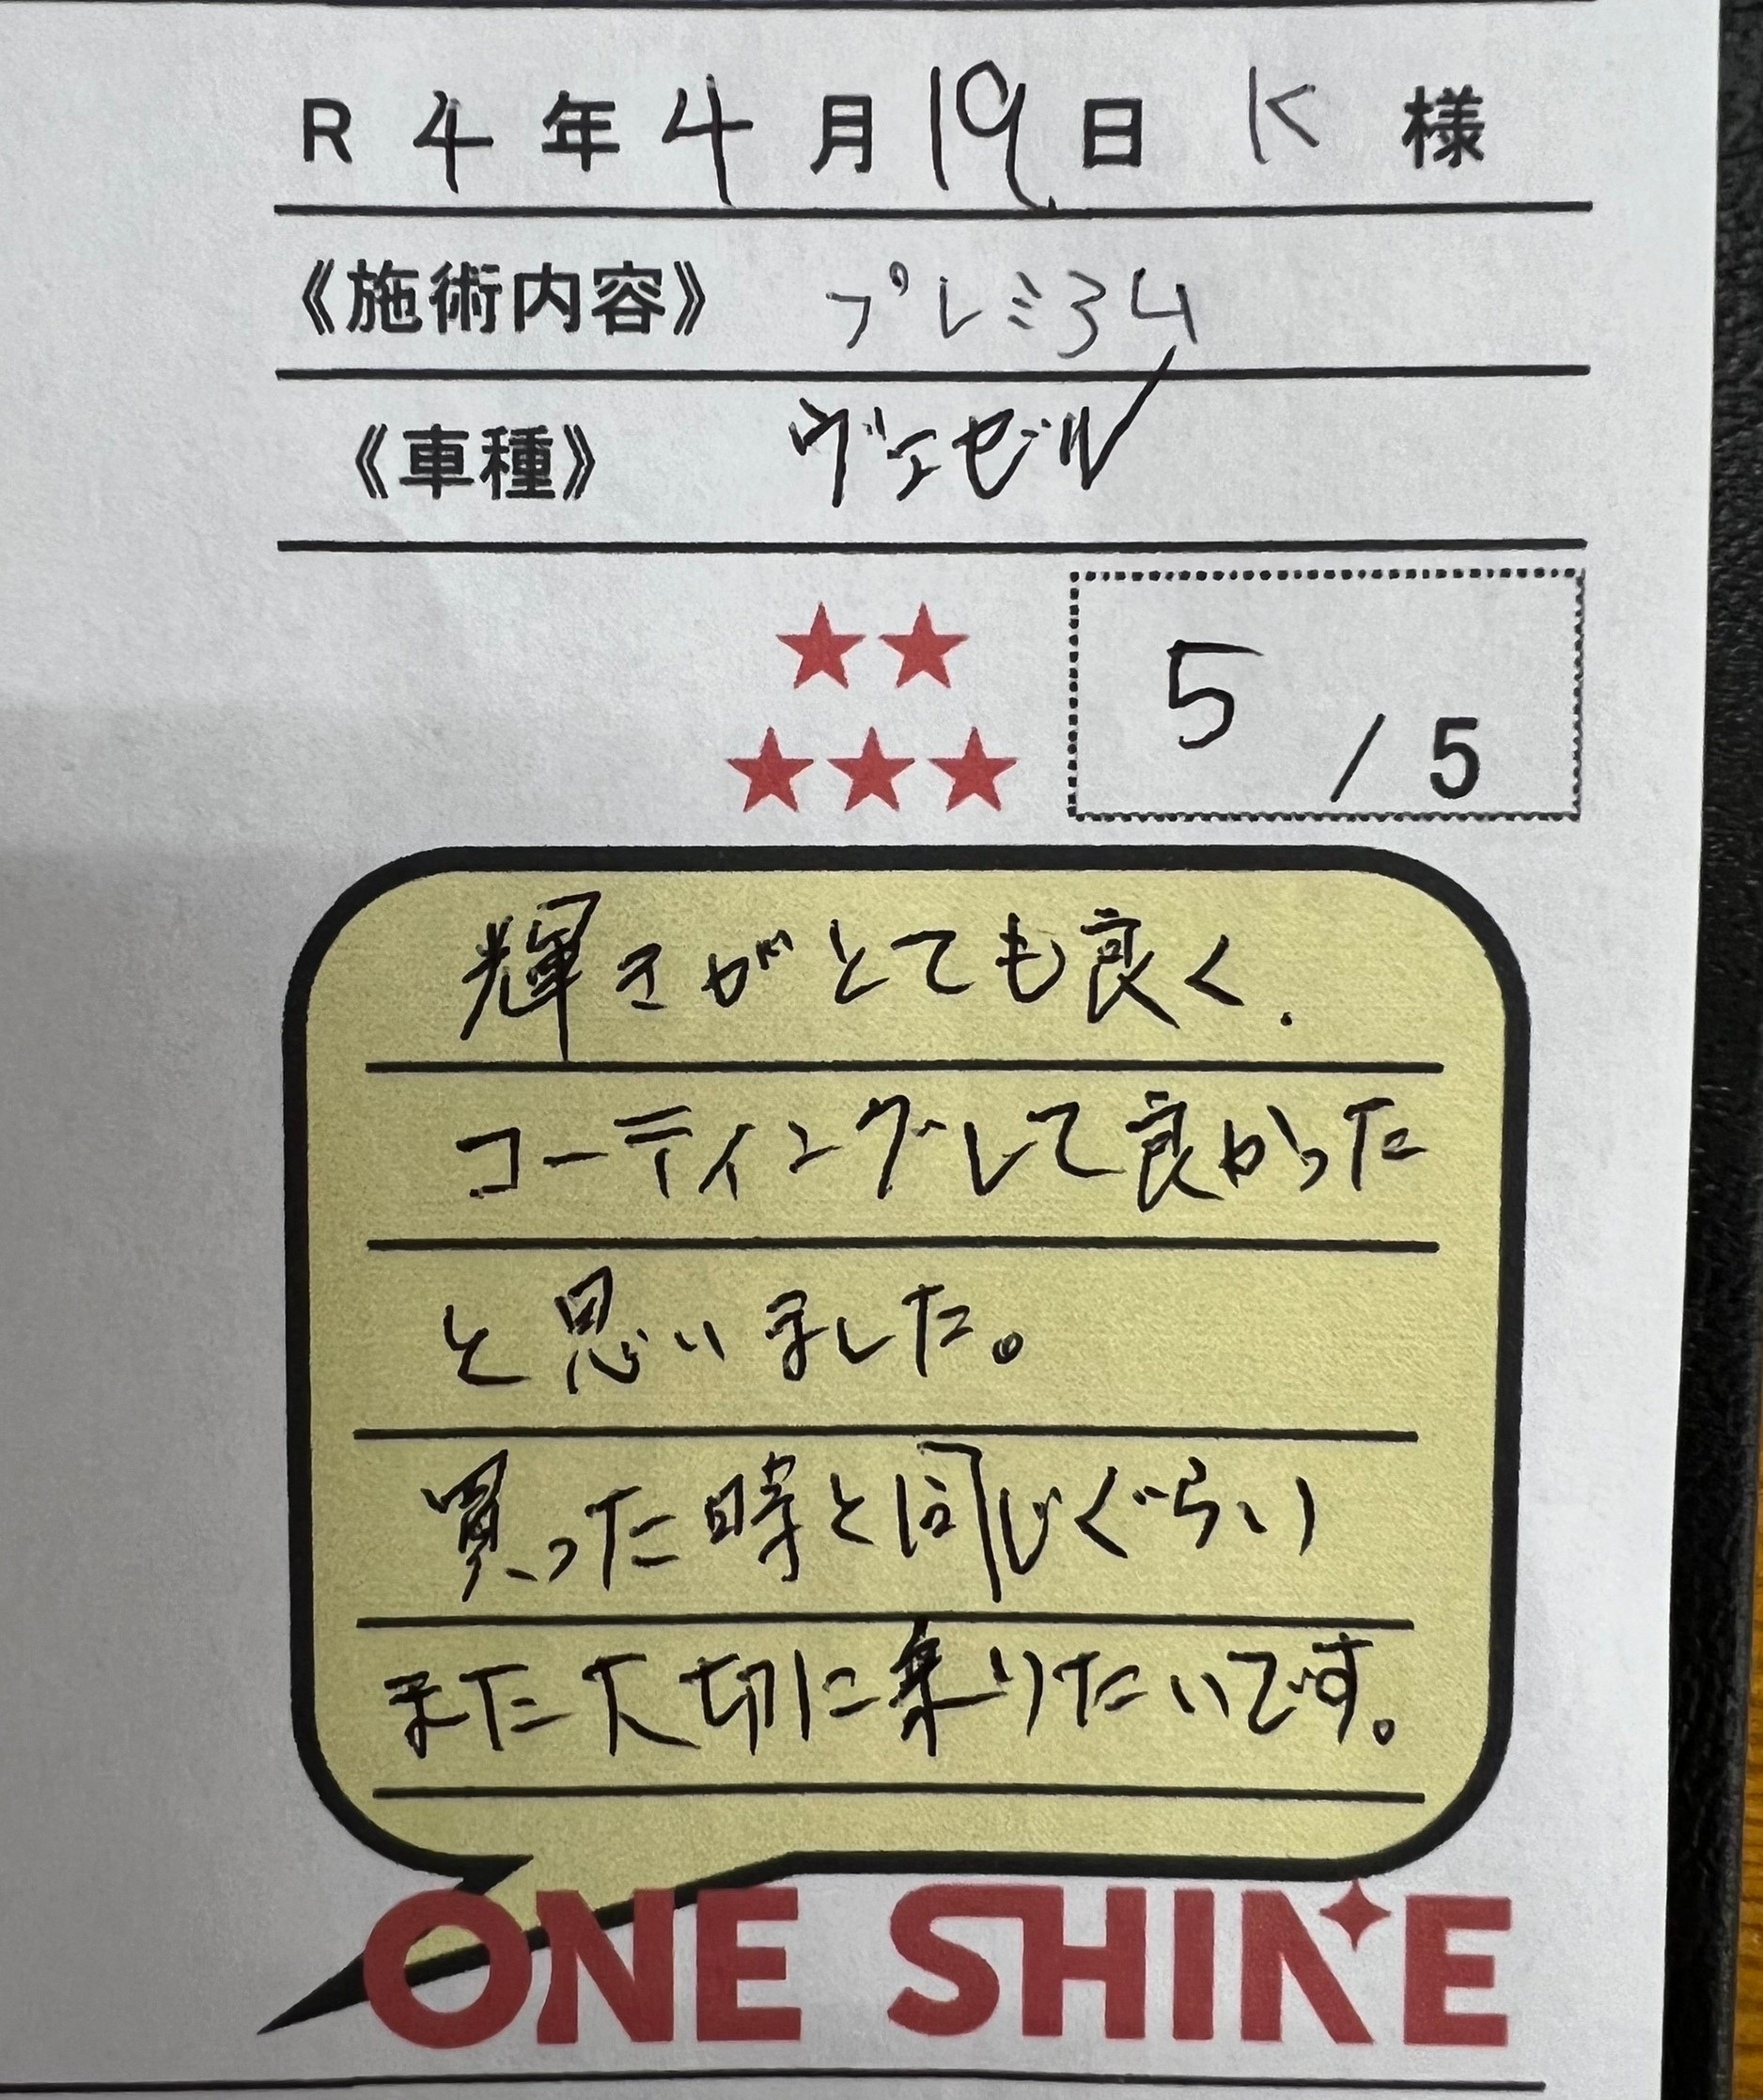 R 4年4月19日 K 様
《施術内容》 プレミアム
《車種》 ヴェゼル
★★
★★★
5 / 5
輝きがとても良く.
コーティングして良かった
と思いました。
買った時と同じぐらい
また大切に乗りたいです。
ONE SHINE